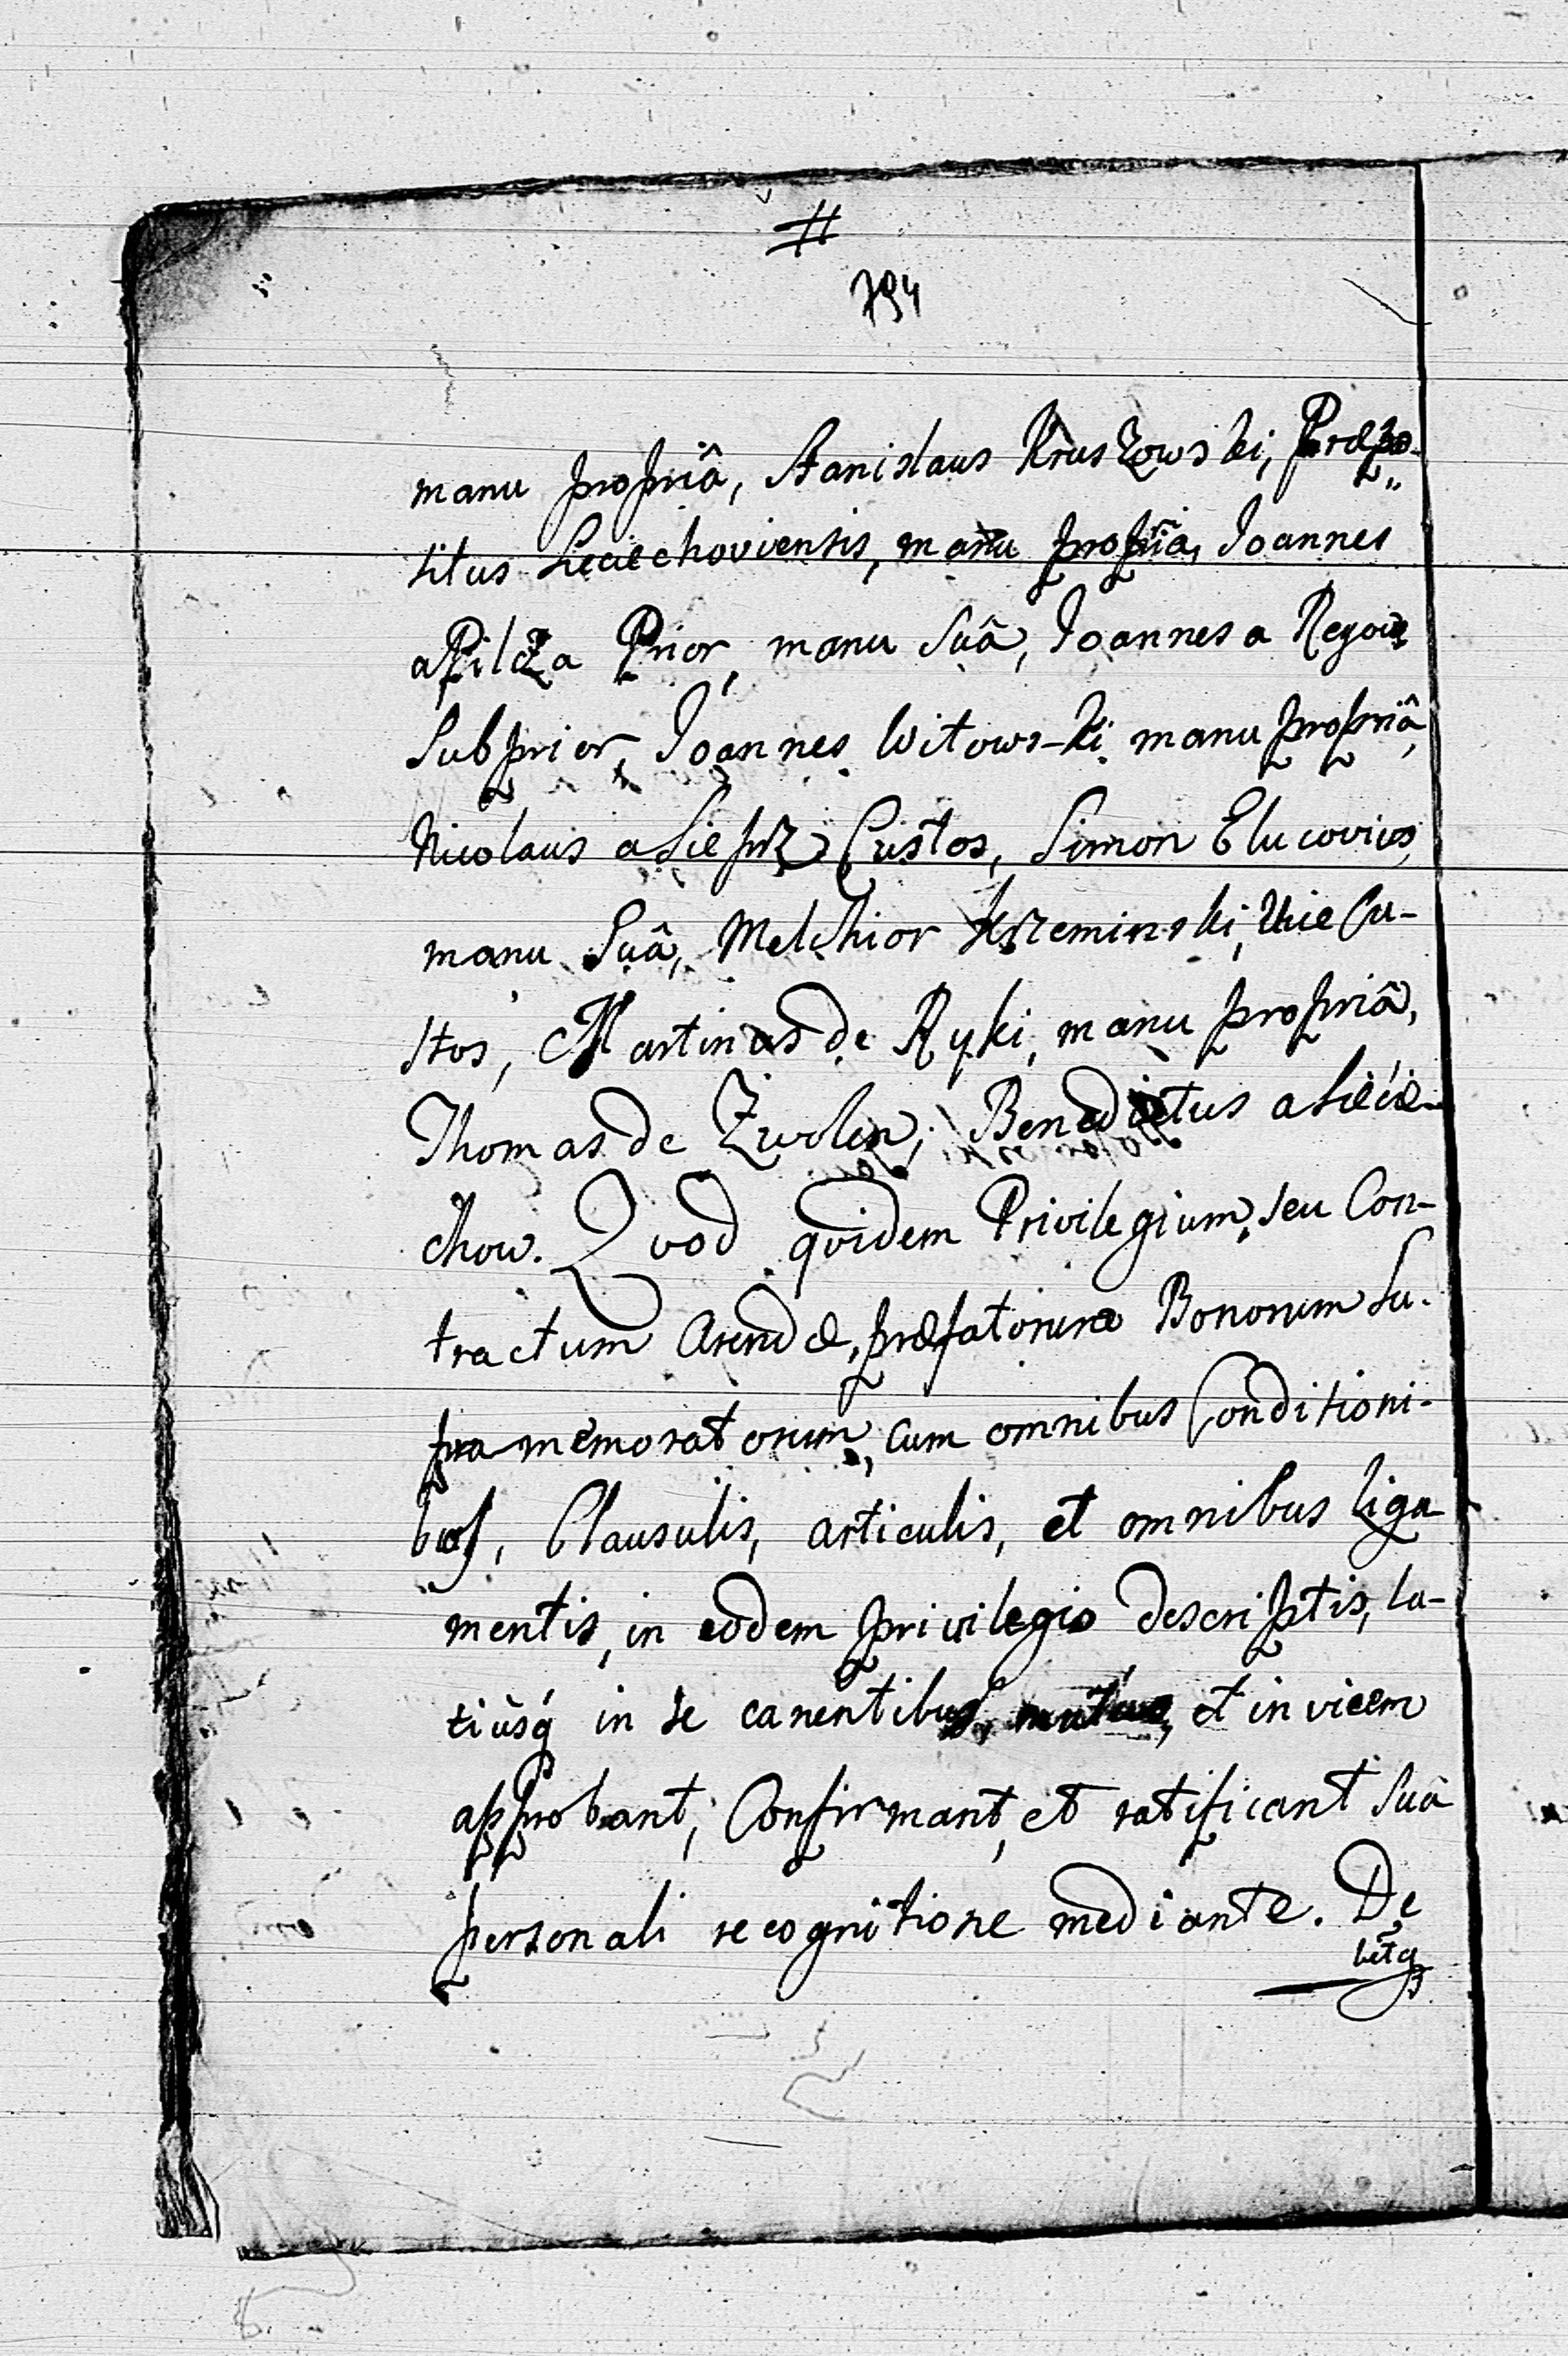 #
794
manu propriâ, Stanislaus Kruszowski, Præpo„
situs Sieciechoviensis, manu propriâ, Joannes
a Pilcza Prior, manu Suâ, Joannes a Regow
Subprior, Joannes Witows-ki manu propriâ,
Nicolaus a Sieprz Custos, Simon Elucovius,
manu Suâ, Melchior Krzeminski, Vice Cu-
stos, Martinus de Ryki, manu propriâ,
Thomas de Zwolen; Benedictus a Siecie-
chow. Qvod qvidem Privilegium, seu Con-
tractum Arendæ, præfatorum Bonorum Su-
pra memoratorum, cum omnibus Conditioni-
bus, Clausulis, articulis, et omnibus liga-
mentis, in eodem privilegio descriptis, la-
tiùsq́ in se canentibus, mutuo, et invicem
approbant, Confirmant, et ratificant Suâ
personali recognitione mediante. De
betq